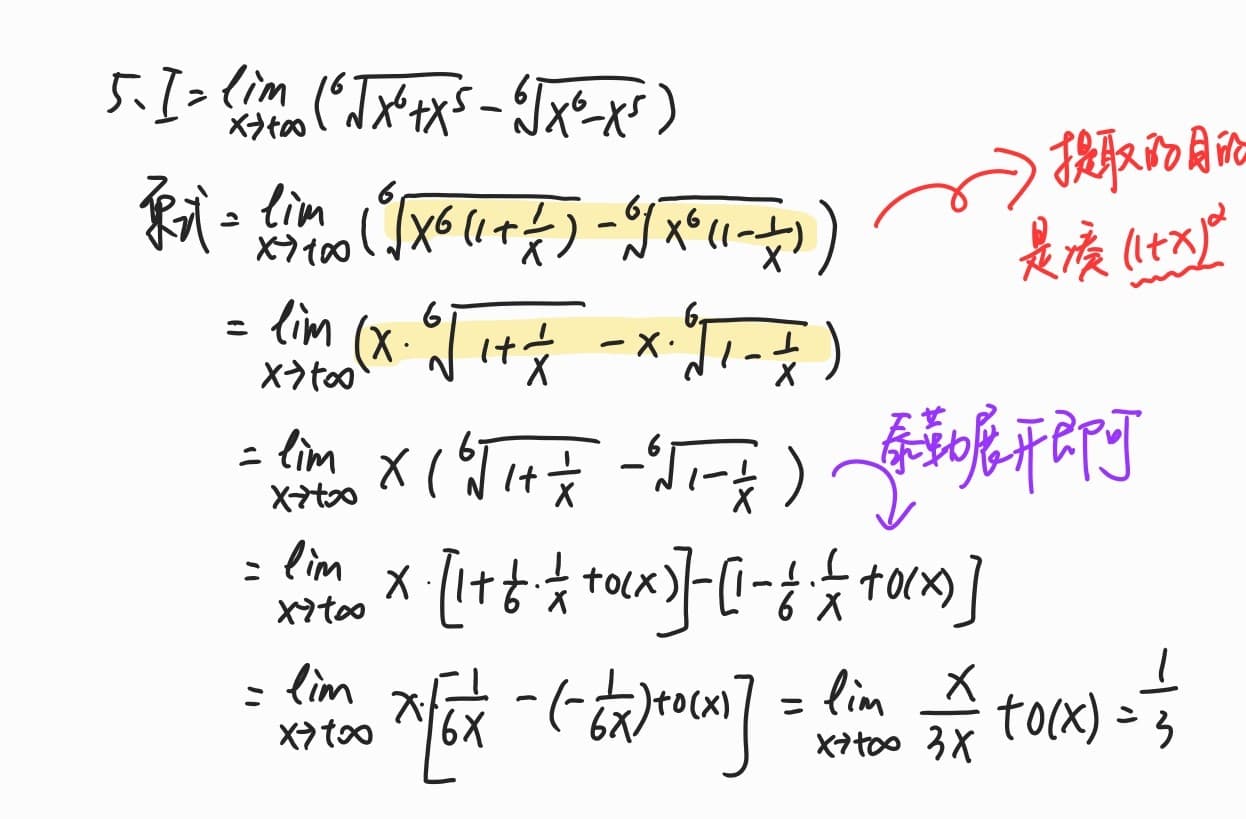 5、I = lim x→+∞ (⁶√(x⁶+x⁵) - ⁶√(x⁶-x⁵))
原式 = lim x→+∞ (⁶√(x⁶(1+1/x)) - ⁶√(x⁶(1-1/x)))
提取的目的
是凑 (1+x)^α
= lim x→+∞ (x·⁶√(1+1/x) - x·⁶√(1-1/x))
= lim x→+∞ x(⁶√(1+1/x) - ⁶√(1-1/x))
泰勒展开即可
= lim x→+∞ x·[1+1/6·1/x+o(x)]-[1-1/6·1/x+o(x)]
= lim x→+∞ x·[1/6x - (-1/6x)+o(x)] = lim x→+∞ x/3x +o(x) = 1/3